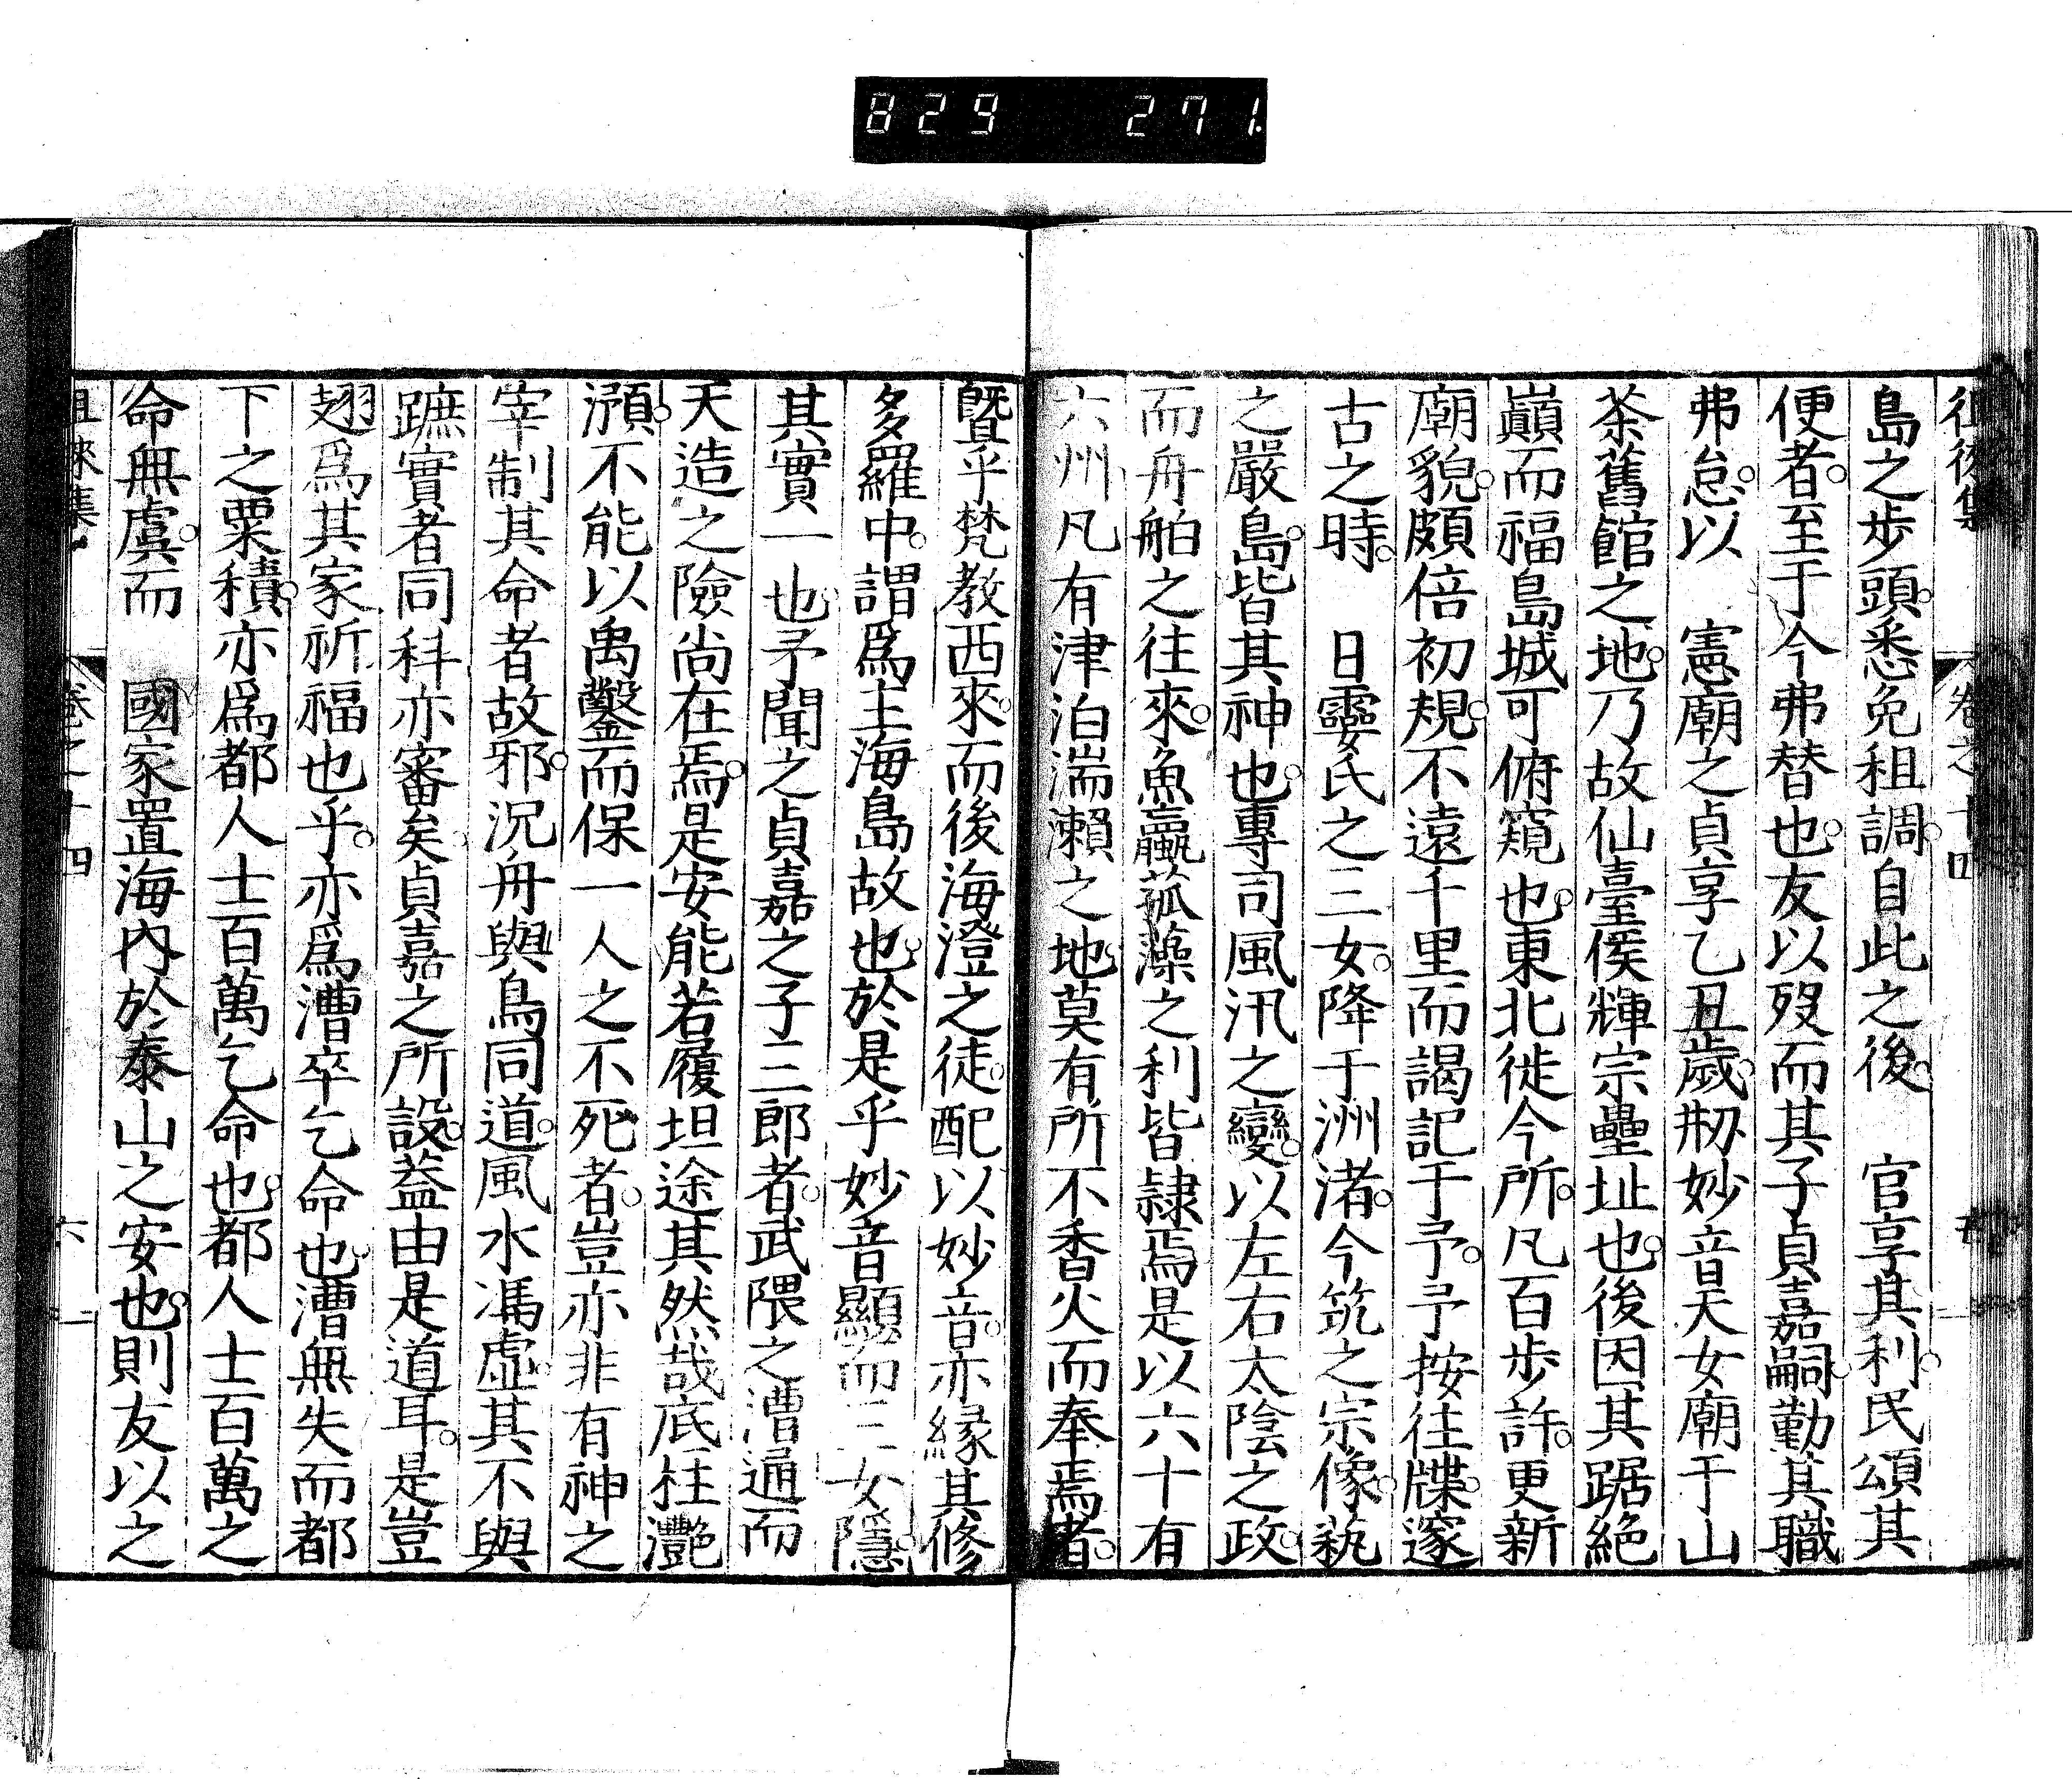 829 271
島之歩頭。悉免租調。自此之後。 官享其利。民頌其
便者。至于今弗替也。友以歿而其子貞嘉嗣。勤其職
弗怠。以 憲廟之貞享乙丑歲。刱妙音天女廟于山
茶舊館之地。乃故仙臺侯輝宗壘址也。後因其踞絶
巔而福島城可俯窺也。東北徙今所。凡百歩許。更新
廟貌。頗倍初規。不遠千里而謁記于予。予按往牒。邃
古之時。 日孁氏之三女。降于洲渚。今筑之宗像。藝
之嚴島。皆其神也。專司風汛之變。以左右太陰之政。
而舟舶之往來。魚蠃菰藻之利皆隷焉是以六十有
六州凡有津泊湍瀨之地。莫有所不香火而奉焉者。
曁乎梵教西來。而後海澄之徒。配以妙音。亦縁其修
多羅中。謂爲主海島故也。於是乎妙音顯而三女隱。
其實一也。予聞之貞嘉之子三郎者。武隈之漕通而
天造之險尚在焉。是安能若履坦途其然哉底柱灧
澦。不能以禹鑿而保一人之不死者。豈亦非有神之
宰制其命者故邪。況舟與鳥同道。風水馮虛。其不與
蹠實者同科亦審矣。貞嘉之所設。蓋由是道耳。是豈
翅爲其家祈福也乎。亦爲漕卒乞命也。漕無失而都
下之粟積。亦爲都人士百萬乞命也。都人士百萬之
命無虞。而 國家置海內於泰山之安也。則友以之
卷之十四
六